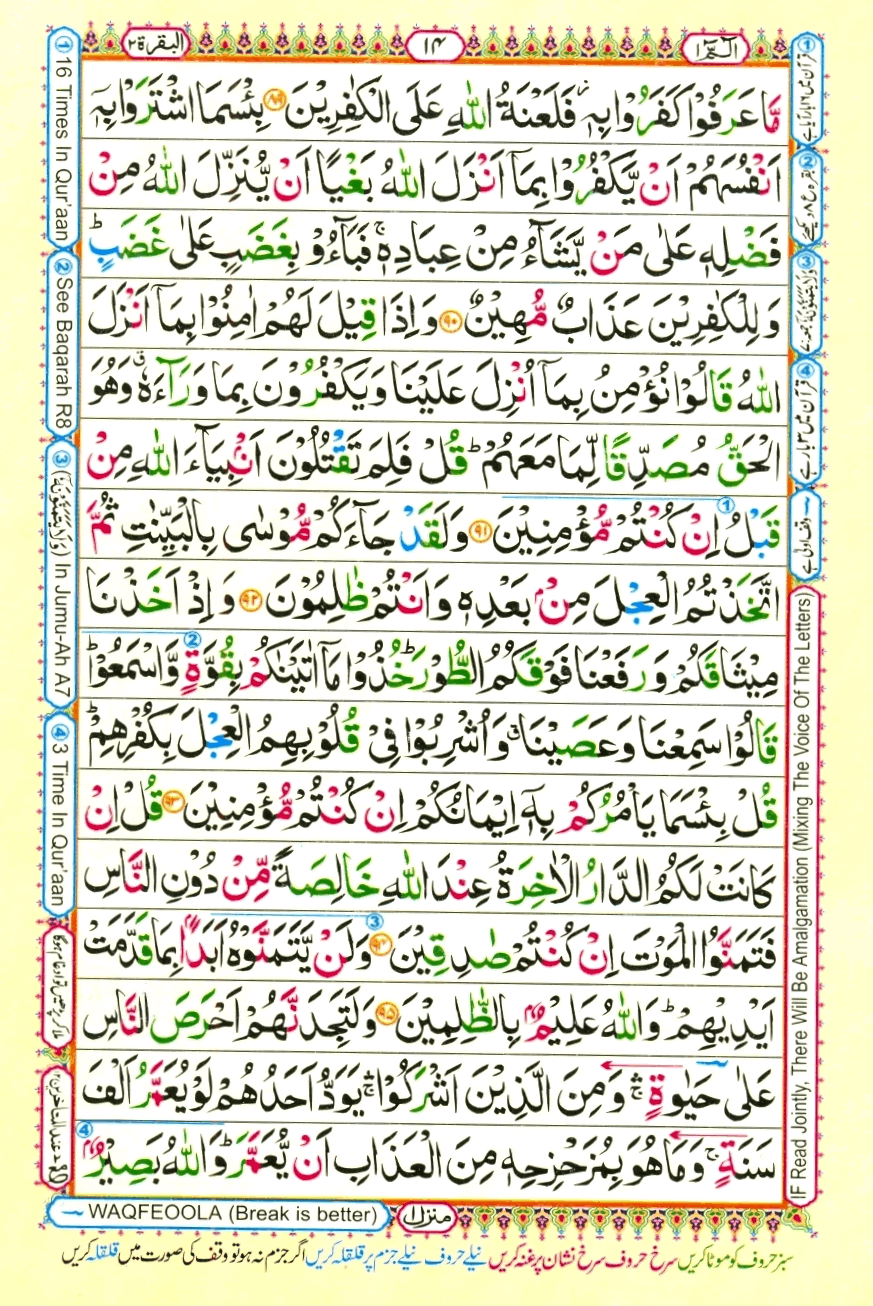 الٓمّٓ ١
١٤
البقرة ٢
مَّا عَرَفُوْا كَفَرُوْا بِهٖ٘ فَلَعْنَةُ اللّٰهِ عَلَى الْكٰفِرِیْنَ ۸۹ بِئْسَمَا اشْتَرَوْا بِهٖۤ
اَنْفُسَهُمْ اَنْ یَّكْفُرُوْا بِمَاۤ اَنْزَلَ اللّٰهُ بَغْیًا اَنْ یُّنَزِّلَ اللّٰهُ مِنْ
فَضْلِهٖ عَلٰی مَنْ یَّشَآءُ مِنْ عِبَادِهٖ ۚ فَبَآءُوْ بِغَضَبٍ عَلٰی غَضَبٍ ؕ
وَ لِلْكٰفِرِیْنَ عَذَابٌ مُّهِیْنٌ ۹۰ وَ اِذَا قِیْلَ لَهُمْ اٰمِنُوْا بِمَاۤ اَنْزَلَ
اللّٰهُ قَالُوْا نُؤْمِنُ بِمَاۤ اُنْزِلَ عَلَیْنَا وَ یَكْفُرُوْنَ بِمَا وَرَآءَهٗ ۗ وَ هُوَ
الْحَقُّ مُصَدِّقًا لِّمَا مَعَهُمْ ؕ قُلْ فَلِمَ تَقْتُلُوْنَ اَنْۢبِیَآءَ اللّٰهِ مِنْ
قَبْلُ اِنْ كُنْتُمْ مُّؤْمِنِیْنَ ۹۱ وَ لَقَدْ جَآءَكُمْ مُّوْسٰی بِالْبَیِّنٰتِ ثُمَّ
اتَّخَذْتُمُ الْعِجْلَ مِنْۢ بَعْدِهٖ وَ اَنْتُمْ ظٰلِمُوْنَ ۹۲ وَ اِذْ اَخَذْنَا
مِیْثَاقَكُمْ وَ رَفَعْنَا فَوْقَكُمُ الطُّوْرَ ؕ خُذُوْا مَاۤ اٰتَیْنٰكُمْ بِقُوَّةٍ وَّ اسْمَعُوْا ؕ
قَالُوْا سَمِعْنَا وَ عَصَیْنَا ۗ وَ اُشْرِبُوْا فِیْ قُلُوْبِهِمُ الْعِجْلَ بِكُفْرِهِمْ ؕ
قُلْ بِئْسَمَا یَاْمُرُكُمْ بِهٖۤ اِیْمَانُكُمْ اِنْ كُنْتُمْ مُّؤْمِنِیْنَ ۹۳ قُلْ اِنْ
كَانَتْ لَكُمُ الدَّارُ الْاٰخِرَةُ عِنْدَ اللّٰهِ خَالِصَةً مِّنْ دُوْنِ النَّاسِ
فَتَمَنَّوُا الْمَوْتَ اِنْ كُنْتُمْ صٰدِقِیْنَ ۹۴ وَ لَنْ یَّتَمَنَّوْهُ اَبَدًۢا بِمَا قَدَّمَتْ
اَیْدِیْهِمْ ؕ وَ اللّٰهُ عَلِیْمٌۢ بِالظّٰلِمِیْنَ ۹۵ وَ لَتَجِدَنَّهُمْ اَحْرَصَ النَّاسِ
عَلٰی حَیٰوةٍ ۛۚ وَ مِنَ الَّذِیْنَ اَشْرَكُوْا ۛۚ یَوَدُّ اَحَدُهُمْ لَوْ یُعَمَّرُ اَلْفَ
سَنَةٍ ۚ وَ مَا هُوَ بِمُزَحْزِحِهٖ مِنَ الْعَذَابِ اَنْ یُّعَمَّرَ ؕ وَ اللّٰهُ بَصِیْرٌۢ
① 16 Times In Qur'aan
② See Baqarah R8
③ (وَلَا یَتَمَنَّوْنَهٗۤ) In Jumu-Ah A7
④ 3 Time In Qur'aan
④ قرآن میں ۳ بار ہے
IF Read Jointly, There Will Be Amalgamation (Mixing The Voice Of The Letters)
WAQFEOOLA (Break is better)
منزل ١
سبز حروف کو موٹا کریں سرخ حروف سرخ نشان پر غنہ کریں نیلے حروف نیلے جزم پر قلقلہ کریں اگر جزم نہ ہو تو وقف کی صورت میں قلقلہ کریں